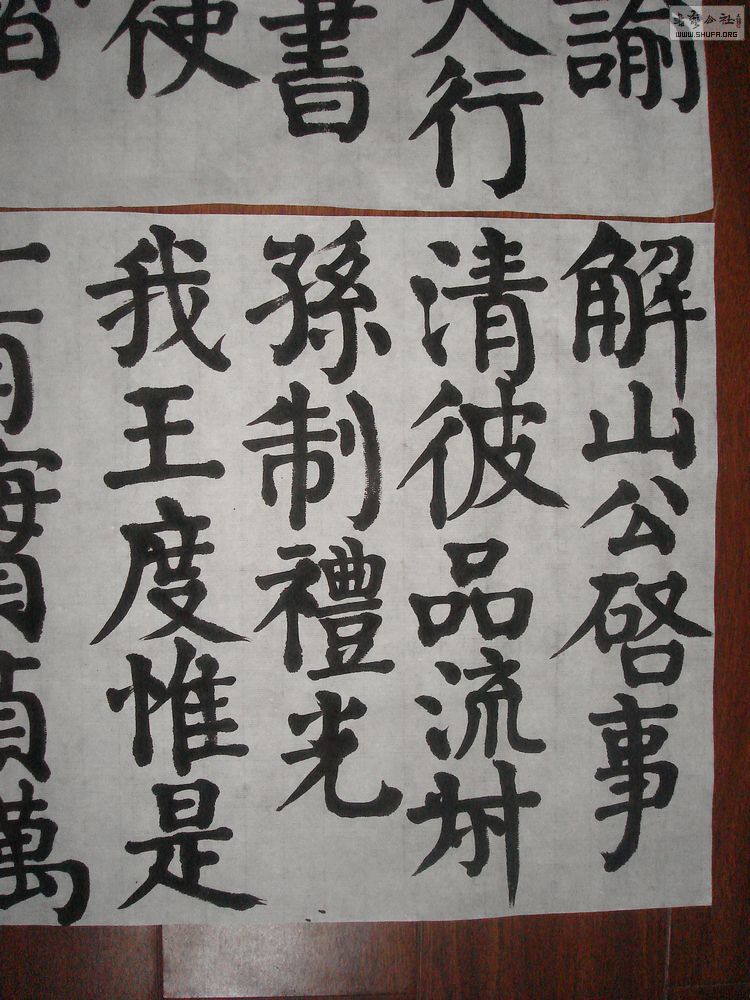 諭
行
書
使
解山公啓事
清彼品流叔
孫制禮光
我王度惟是
貞萬
WWW.SHUFA.ORG